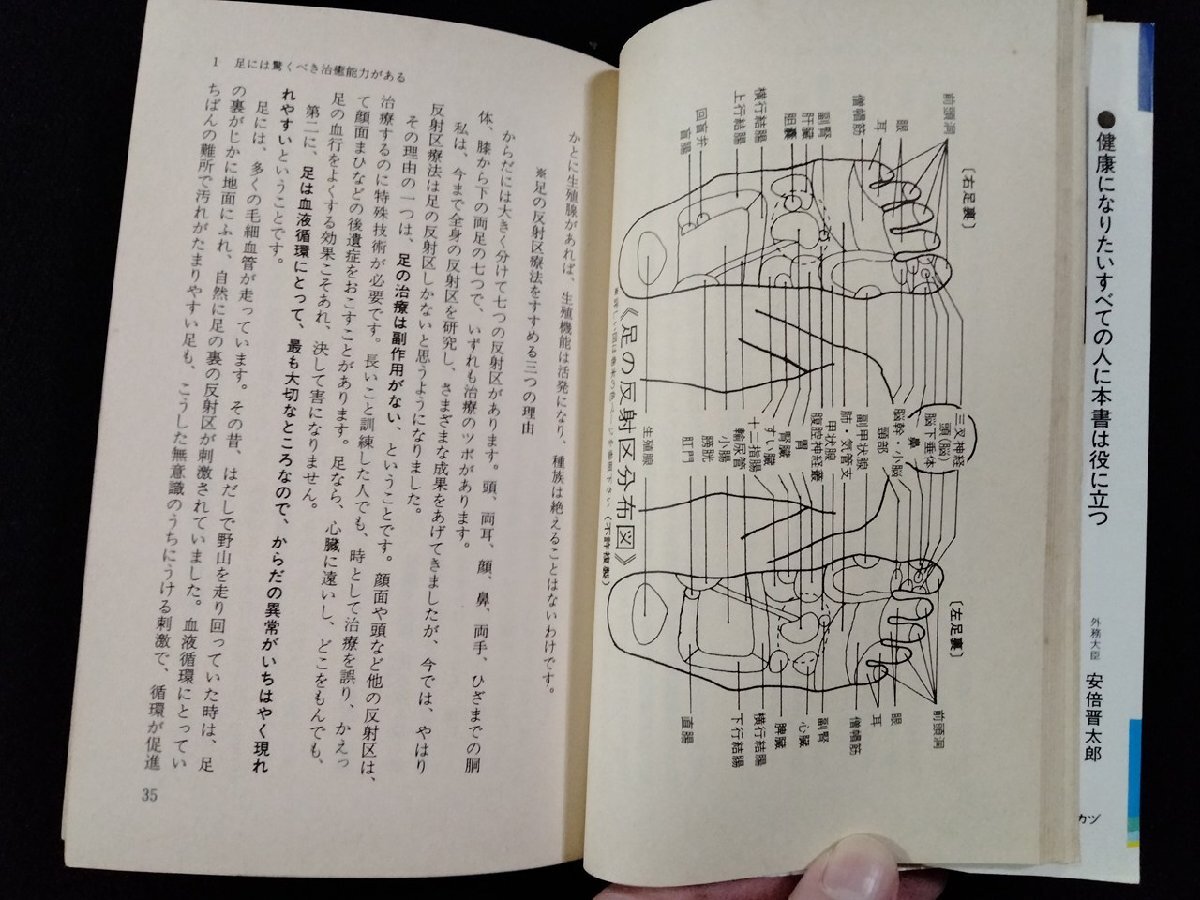 ●健康になりたいすべての人に本書は役に立つ
外務大臣 安倍晋太郎
カツ
〔右足裏〕
前頭洞
眼
耳
僧帽筋
副腎
肝臓
胆嚢
横行結腸
上行結腸
回盲弁
盲腸
三叉神経
頭(脳)
脳下垂体
鼻
脳幹・小脳
頸部
副甲状腺
肺・気管支
甲状腺
胃
腹腔神経叢
腎臓
すい臓
十二指腸
輸尿管
小腸
膀胱
肛門
生殖腺
《足の反射区分布図》
〔左足裏〕
前頭洞
眼
耳
僧帽筋
副腎
心臓
脾臓
横行結腸
下行結腸
直腸
かとに生殖腺があれば、生殖機能は活発になり、種族は絶えることはないわけです。
※足の反射区療法をすすめる三つの理由
からだには大きく分けて七つの反射区があります。頭、両耳、顔、鼻、両手、ひざまでの胴
体、膝から下の両足の七つで、いずれも治療のツボがあります。
私は、今まで全身の反射区を研究し、さまざまな成果をあげてきましたが、今では、やはり
反射区療法は足の反射区しかないと思うようになりました。
その理由の一つは、足の治療は副作用がない、ということです。顔面や頭など他の反射区は、
治療するのに特殊技術が必要です。長いこと訓練した人でも、時として治療を誤り、かえっ
て顔面まひなどの後遺症をおこすことがあります。足なら、心臓に遠いし、どこをもんでも、
足の血行をよくする効果こそあれ、決して害になりません。
第二に、足は血液循環にとって、最も大切なところなので、からだの異常がいちはやく現れ
れやすいということです。
足には、多くの毛細血管が走っています。その昔、はだしで野山を走り回っていた時は、足
の裏がじかに地面にふれ、自然に足の裏の反射区が刺激されていました。血液循環にとってい
ちばんの難所で汚れがたまりやすい足も、こうした無意識のうちにうける刺激で、循環が促進
1 足には驚くべき治癒能力がある
35